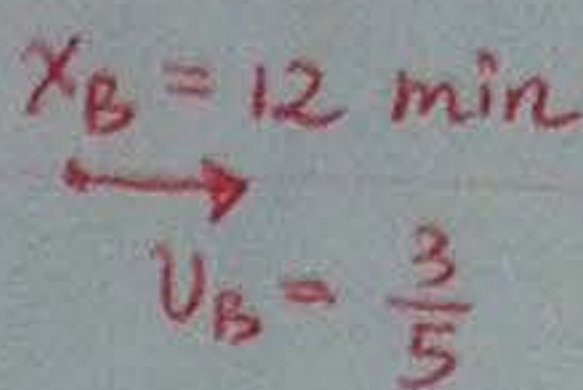 X_B = 12 min
U_B = 3/5